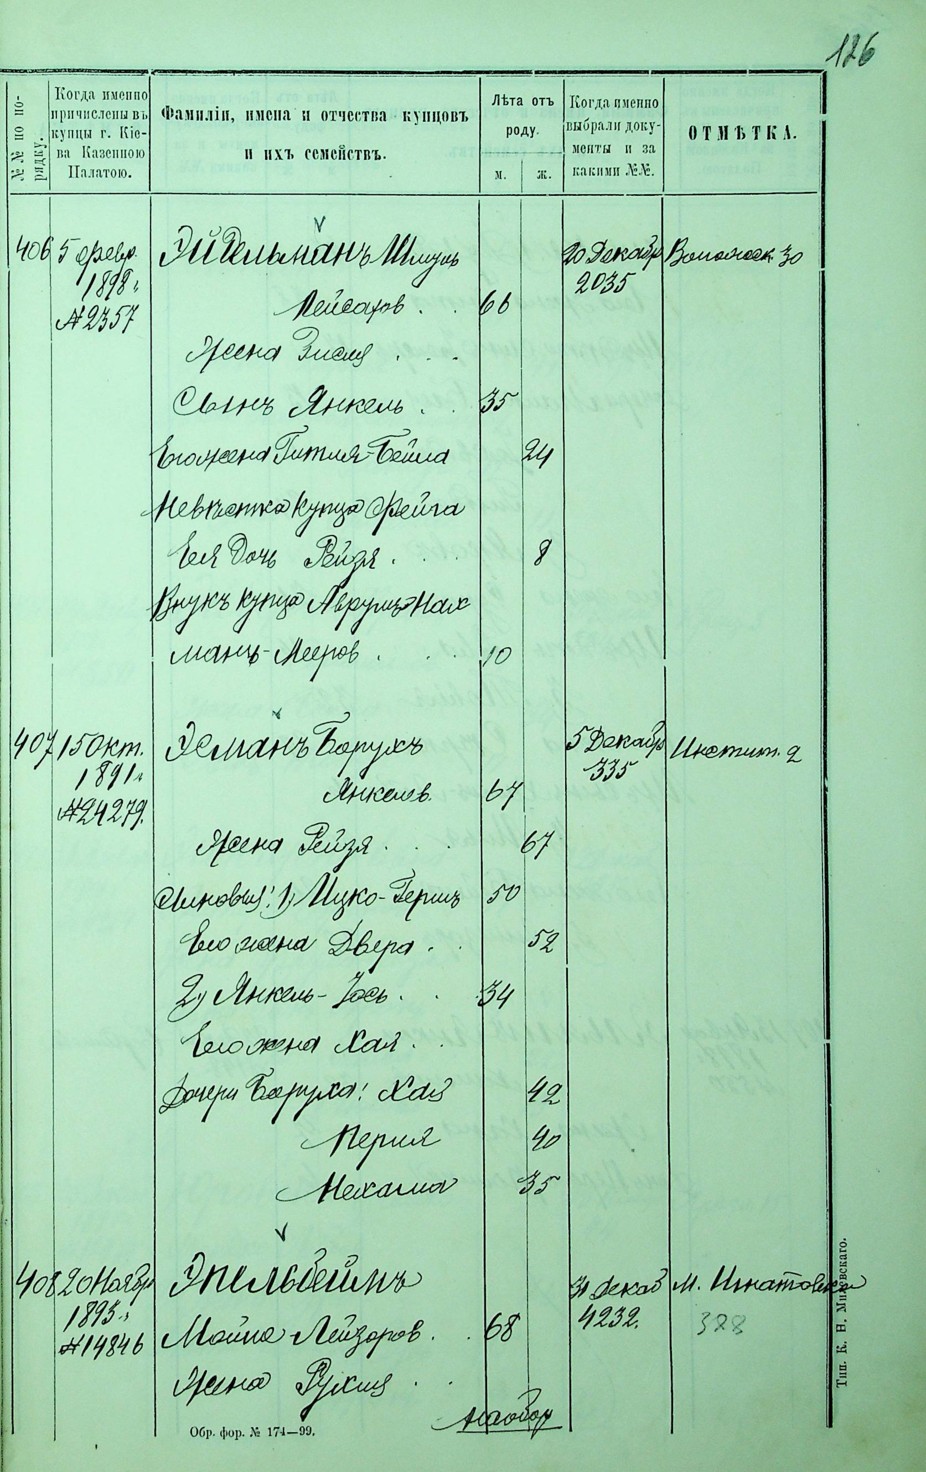 126
№№ по порядку.
Когда именно причислены въ купцы г. Кіева Казенною Палатою.
Фамиліи, имена и отчества купцовъ и ихъ семействъ.
Лѣта отъ роду.
м.
ж.
Когда именно выбрали документы и за какими №№.
ОТМѢТКА.
406 5 февр. Эйдельманъ Шмуль 20 Декабр
1898 г. 2035
№2357 Пейсахов . . 66
Жена Зисля . . .
Сынъ Янкель . . 35
Его жена Гитля-Бейла 24
Невѣстка купца Фейга
Ея дочь Рейзя . . . 8
Внукъ купца Аврумъ-Нах
манъ-Мееров . . . 10
407 15 Окт. Эсманъ Борухъ 5 Декабр Институт. 2
1891 г. 335
№24279. Янкелев. 67
Жена Рейзя . . . 67
Сыновья: 1) Ицко-Гершъ 50
Его жена Двера . . 52
2) Янкель-Іось . . 34
Его жена Хая . .
Дочери Боруха: Хая 42
Перля 40
Нехама 35
408 20 Ноябр Эпельбеймъ 31 Декаб М. Игнатовская
1895 г. 4232. 328
№14846 Мойше-Лейзоров . . 68
Жена Рухля . .
на обор
Обр. фор. № 174—99.
Тип. К. Н. Милевскаго.